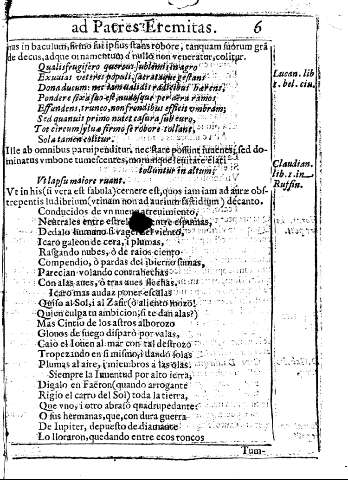 ad Patres Eremitas. 6
nas in baculum, firmo sui ipsius stans robore, tanquam suorum grã
de decus, adque ornamentum à nullo non venerator, colitur.
Qualis frugifero quercus sublimis in agro
Exuuias veteres populi, sacrataque gestans
Dona ducum: nec iam validis radicibus haerens,
Pondere fixa suo est, nudosque per aera ramos
Effundens, trunco, non frondibus efficit vmbram;
Sed quamuis primo nutet casura sub euro,
Tot circum syluae firmo se robore tollant,
Sola tamen colitur.
Lucan. lib
1. bel. ciu.
Ille ab omnibus paruipenditur, nec stare possunt iuuenes, sed do-
minatus vmbone tumescentes,
tolluntur in altum;
Vt lapsu maiore ruant.
Claudian.
lib. 1. in
Ruffin.
Vt in his (si vera est fabula) cernere est, quos iam iam ad aurae obs-
trepentis ludibrium (vtinam non ad aurium fastidium) decanto.
Conducidos de vn mar atreuimiento,
Neutrales entre estrellas, entre espumas,
Dedalo humano si vager del viento,
Icaro galeon de cera, i plumas,
Rasgando nubes, ò de raios ciento
Compendio, ò pardas del ibierno sumas,
Parecian volando contrahechas
Con alas aues, ò tras aues flechas.
Icaro mas audaz poner escalas
Quiso al Sol, i al Zafir (ò aliento mozo!
Quien culpa tu ambicion, si te dan alas?)
Mas Cintio de los astros alborozo
Globos de fuego disparò por valas,
Caio el Iouen al mar con tal destrozo
Tropezando en si mismo, i dandó solas
Plumas al aire, i miembros à las olas.
Siempre la Iuuentud por alto ierra,
Digalo en Faëton (quando arrogante
Rigio el carro del Sol) toda la tierra,
Que vno, i otro abrasò quadrupedante:
O sus hermanas, que, con dura guerra
De Iupiter, depuesto de diamante
Lo lloraron, quedando entre ecos roncos
Tum-